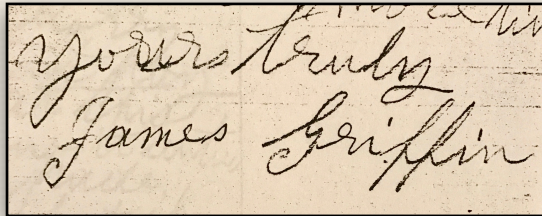 yours truly
James Griffin